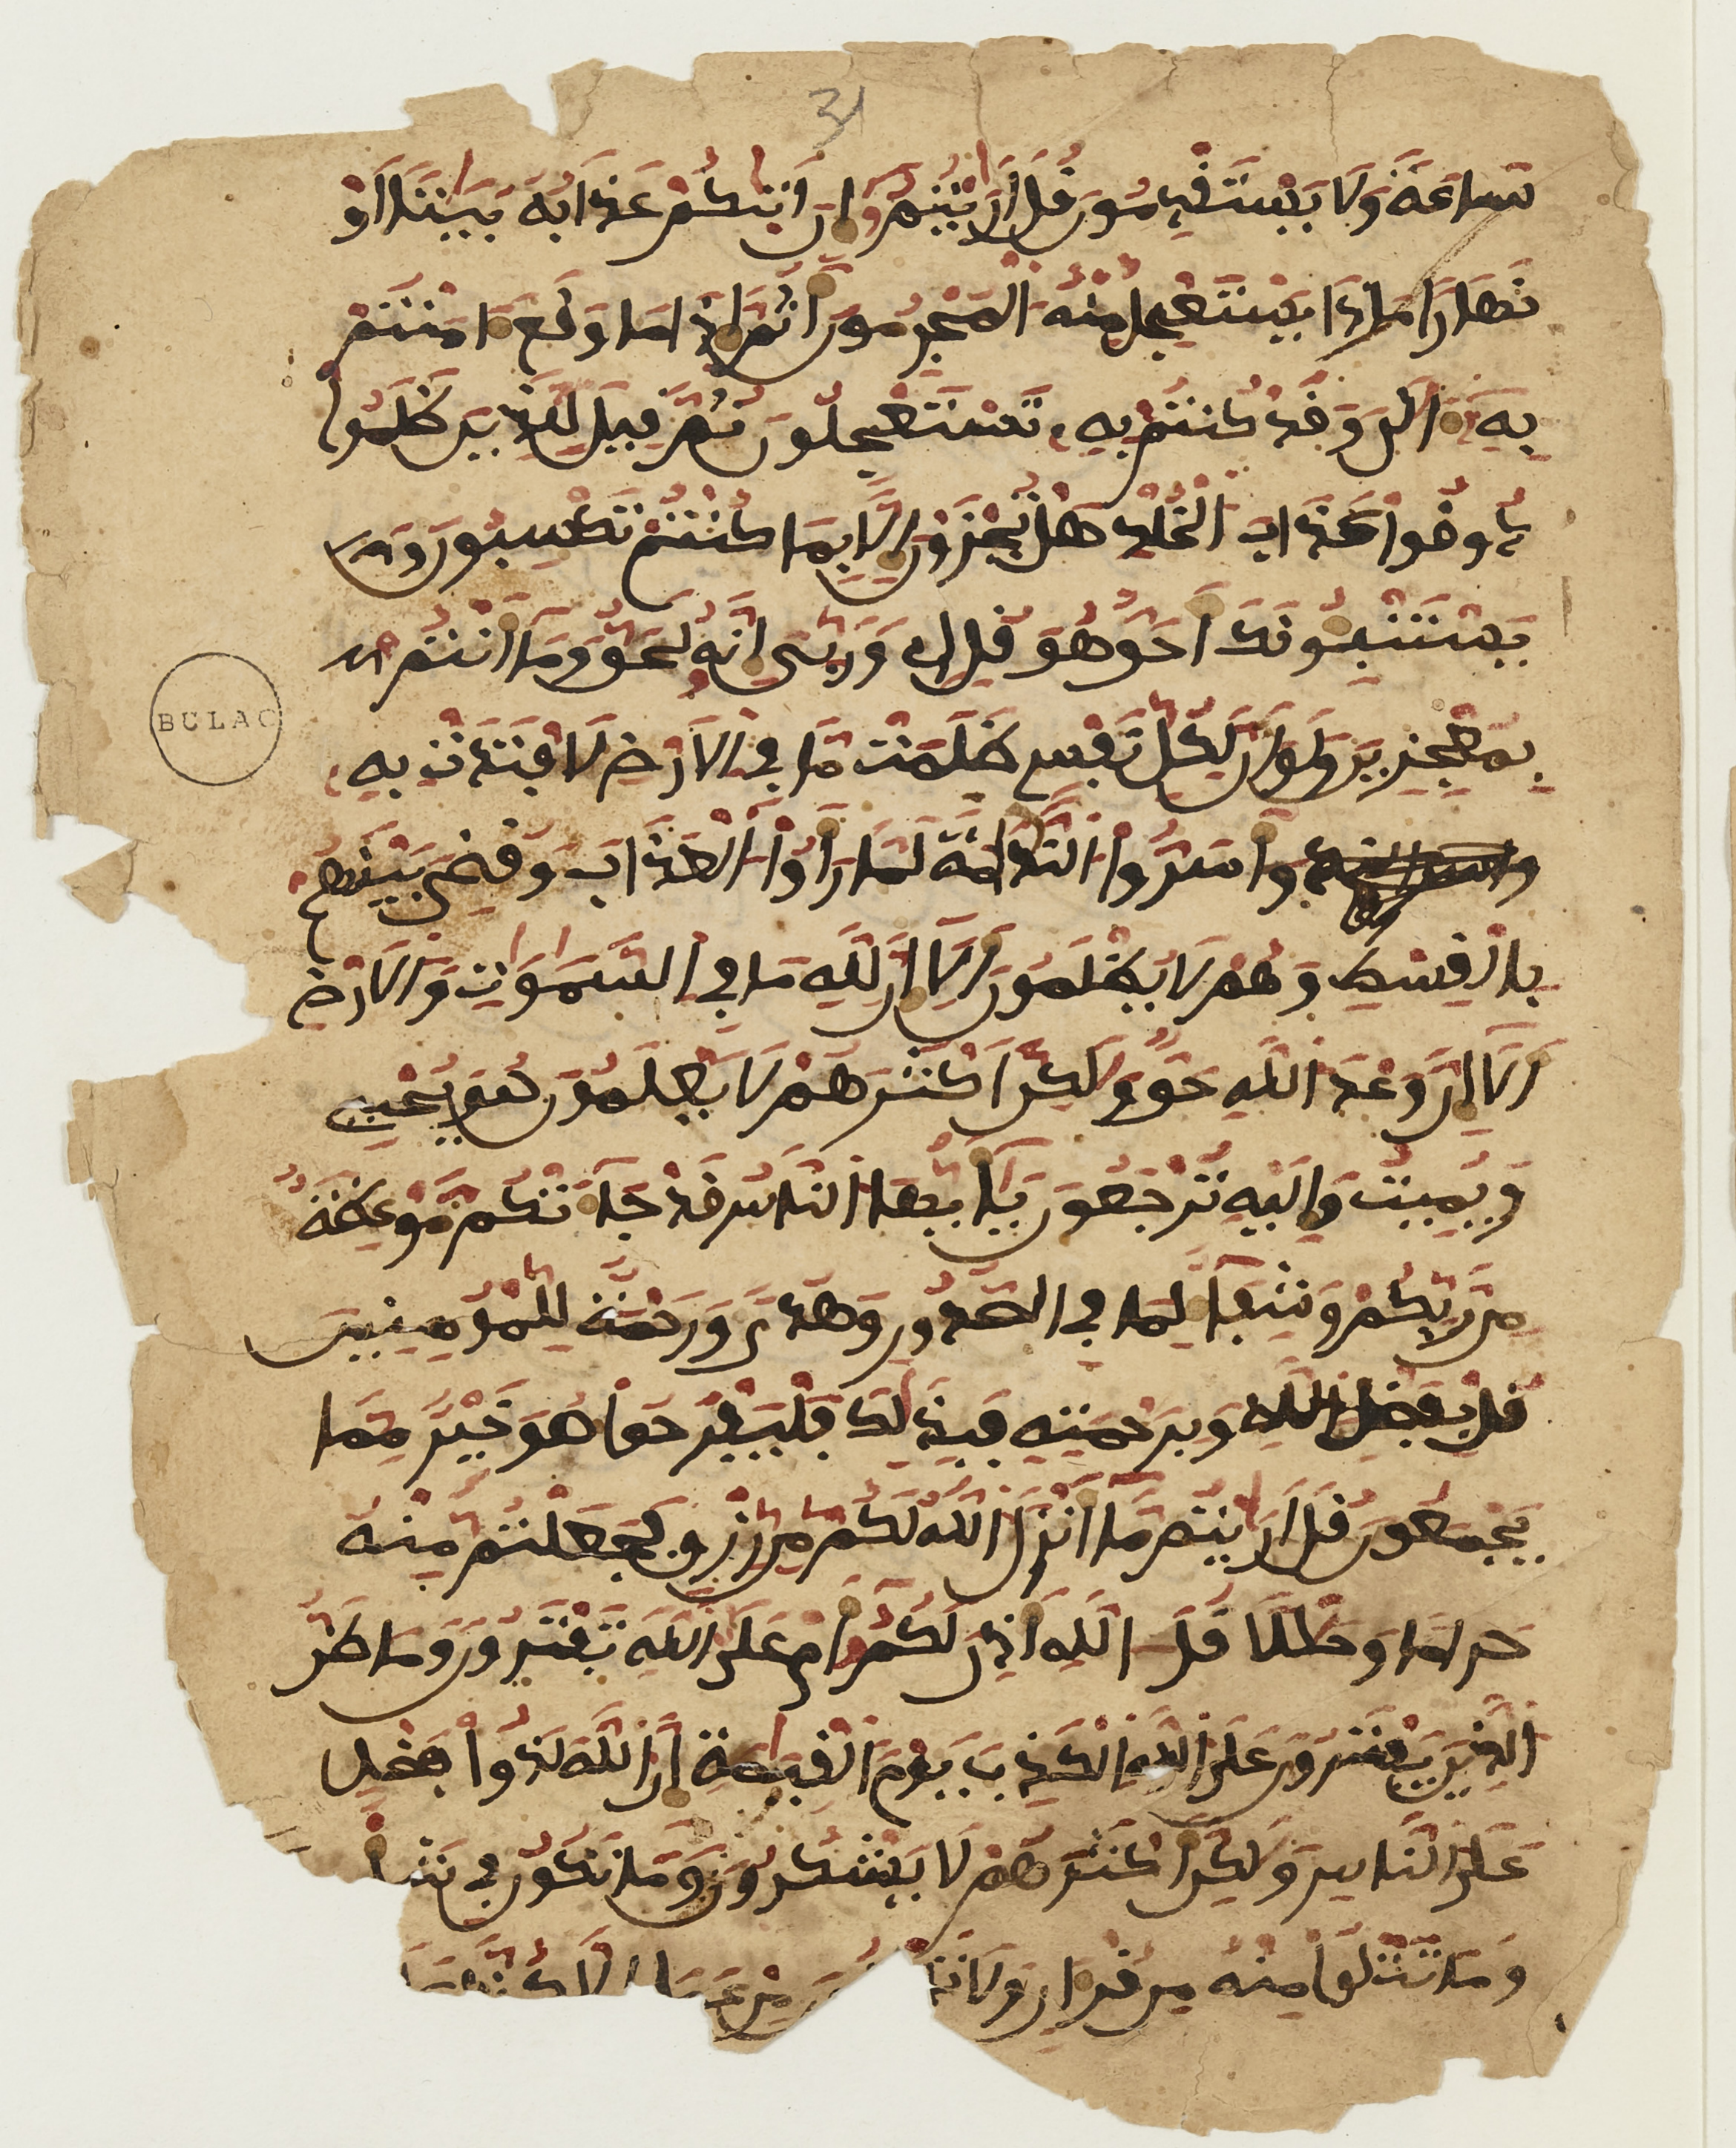 31
ساعة ولا يستقدمون قل ارايتم ان اتيكم عذابه بيتا او
نهارا ماذا يستعجل منه المجرمون اثم اذا ما وقع امنتم
به الن وقد كنتم به تستعجلون ثم قيل للذين ظلموا
ذوقوا عذاب الخلد هل تجزون الا بما كنتم تكسبون و
يستنبونك احق هو قل اي وربي انه لحق وما انتم
بمعجزين ولو ان لكل نفس ظلمت ما في الارض لافتدت به
واسروا الندامة لما راوا العذاب وقضي بينهم
بالقسط وهم لا يظلمون الا ان لله ما في السموت والارض
الا ان وعد الله حق ولكن اكثرهم لا يعلمون هو يحيي
ويميت واليه ترجعون يايها الناس قد جاتكم موعظة
من ربكم وشفا لما في الصدور وهدى ورحمة للمومنين
قل بفضل الله وبرحمته فبذلك فليفرحوا هو خير مما
BULAC
يجمعون قل ارايتم ما انزل الله لكم من رزق فجعلتم منه
حراما وحللا قل الله اذن لكم ام على الله تفترون وما ظن
الذين يفترون على الله الكذب يوم القيمة ان الله لذوا فضل
على الناس ولكن اكثرهم لا يشكرون وما تكون في شا
وما تتلوا منه من قران ولا من عمل الا كنا